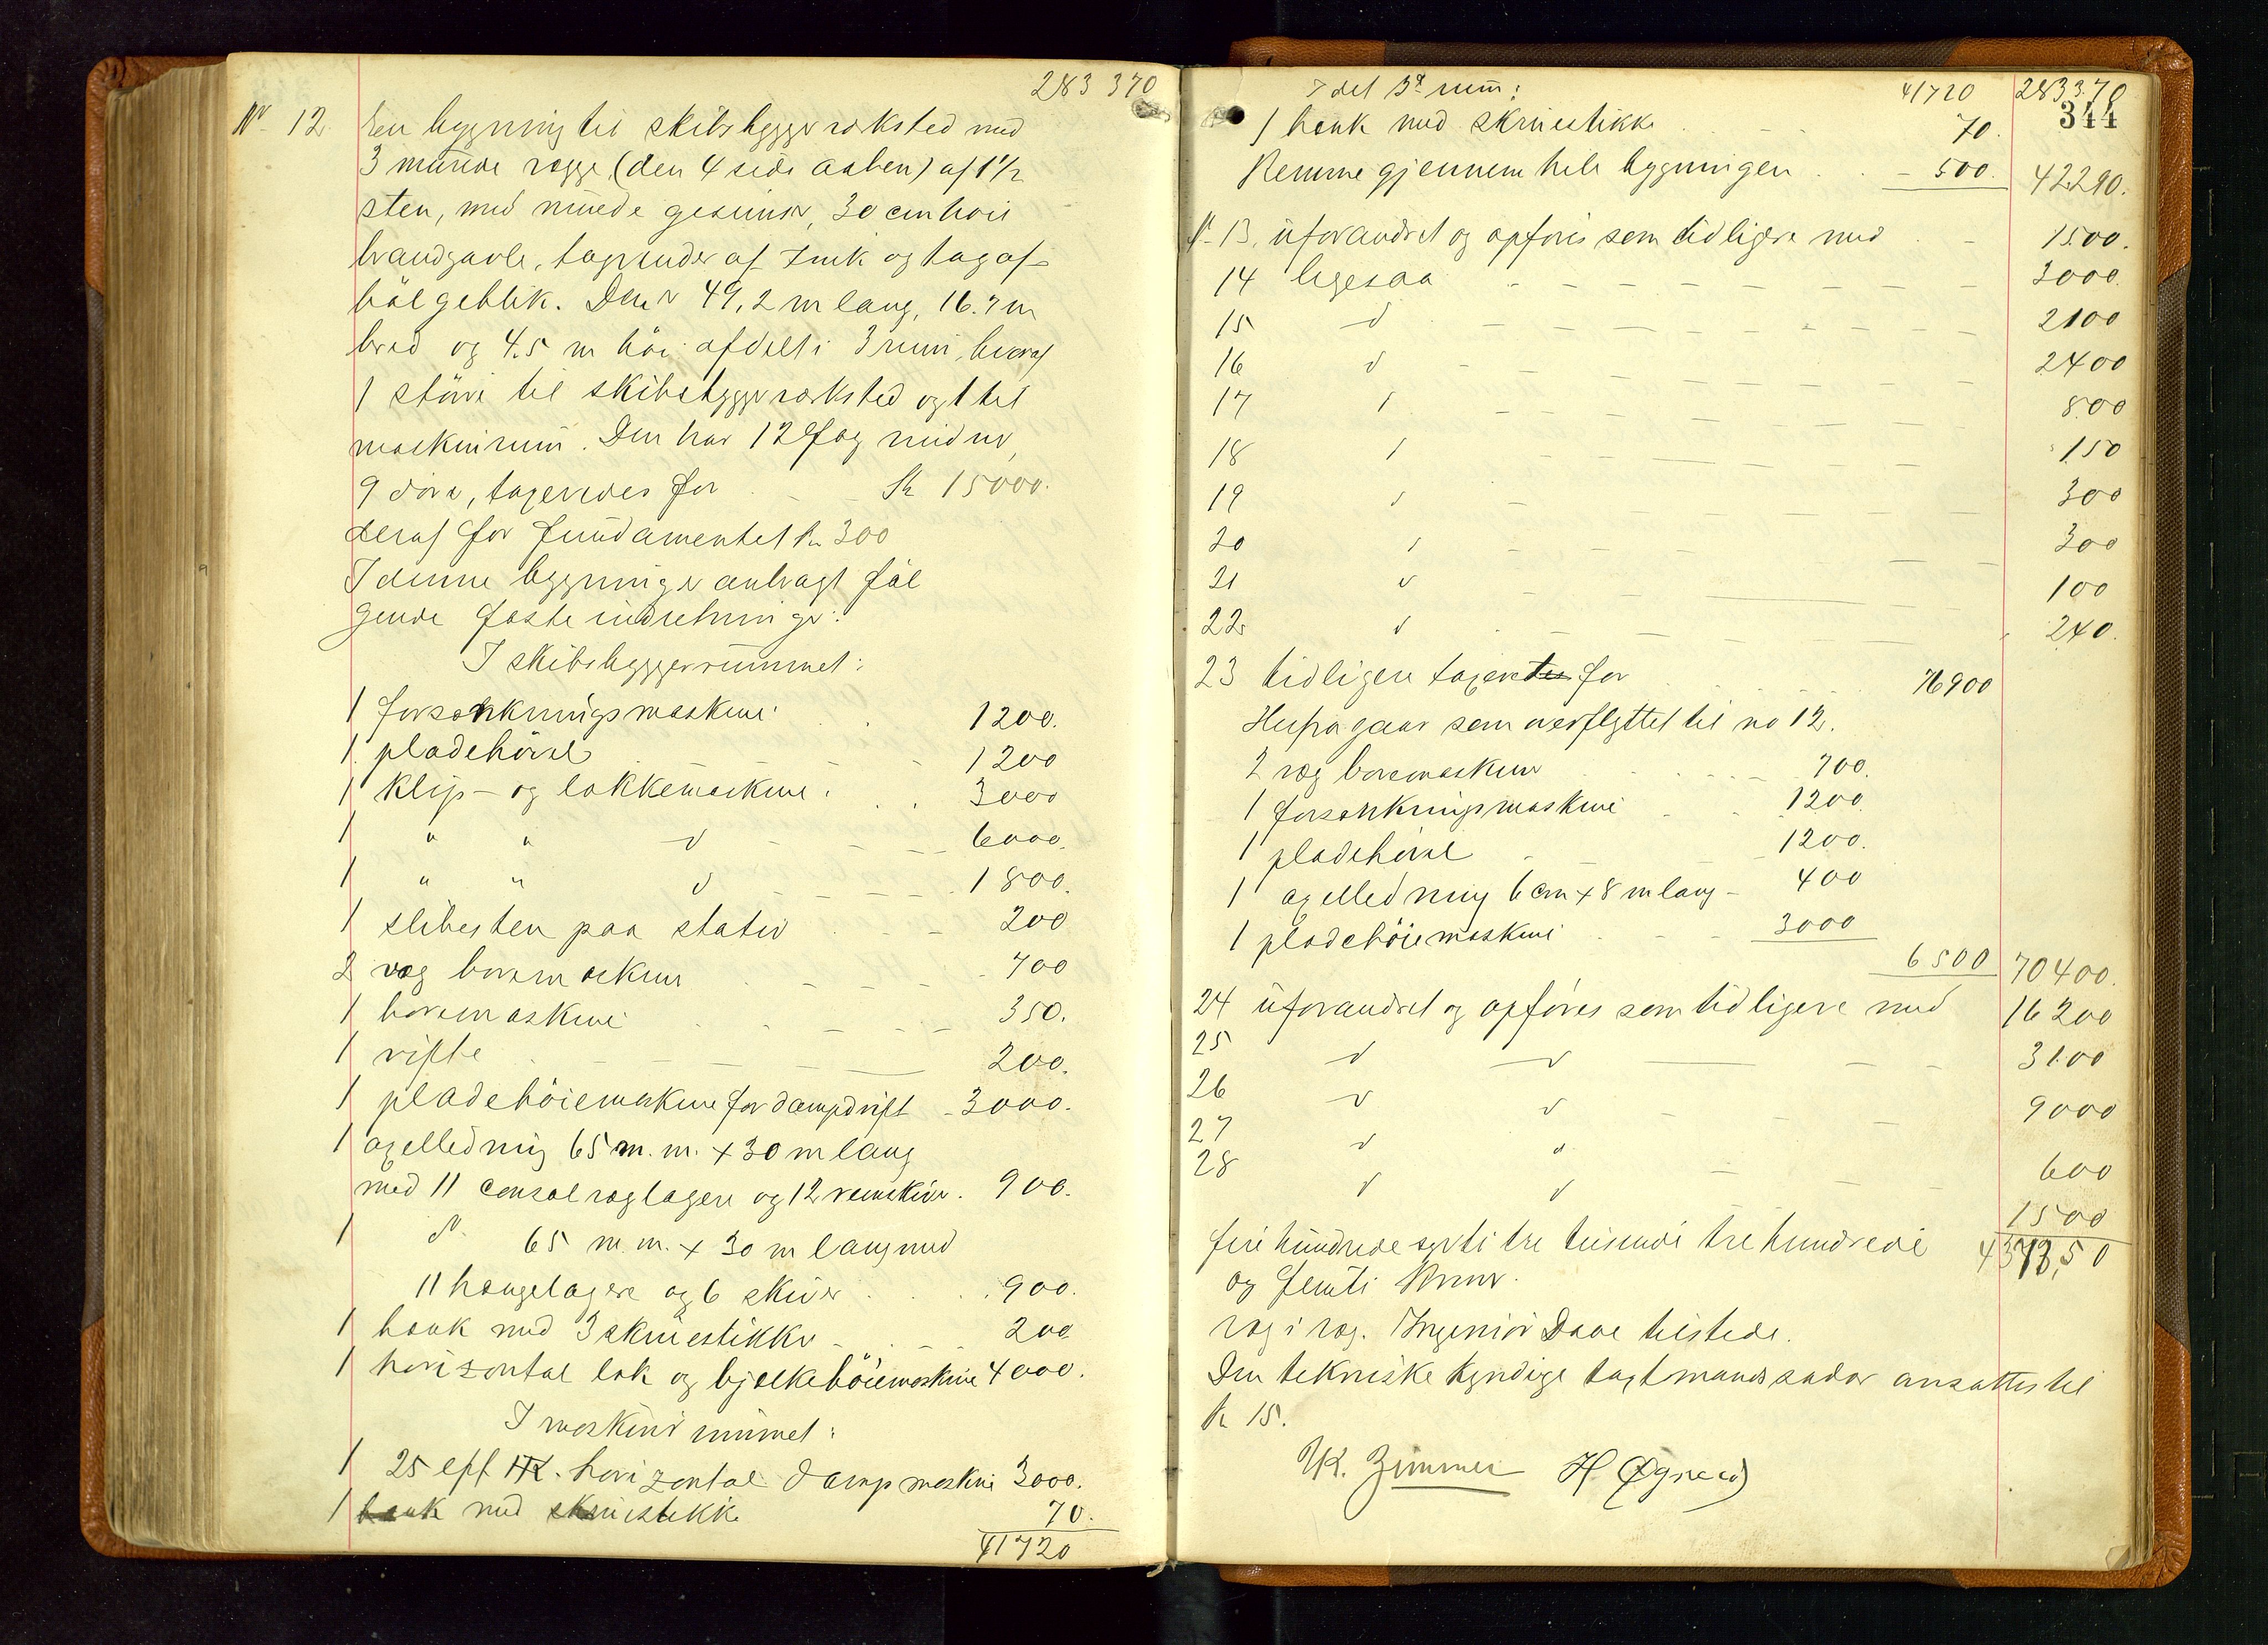 283 370
No 12. En bygning til skibsbyggerværksted med
3 murede vægge (den 4 side aaben) af 1 1/2
sten, med murede gesimser, 30 cm høie
brandgavle, tagrender af zink og tag af
bølgeblik. Den er 49,2 m lang, 16.7 m
bred og 4.5 m höi afdelt i 3 rum, hvoraf
1 större til skibsbyggerværksted og 1 til
maskinrum. Den har 12 fag ruider,
9 döre, taxeredes for Kr 15000.
deraf for fundamentet kr 300
I denne bygning er anbragt föl
gende faste indretninger:
I skibsbyggerrummet:
1 forsænkningsmaskine 1200.
1 pladehövel 1200
1 klip- og lokkemaskine 3000
1 " " d 6000.
1 " " d 1800.
1 slibesten paa stativ 200
2 væg boremaskiner 700
1 boremaskine 350.
1 vifte 200.
1 pladeböiemaskine for dampdrift 3000.
1 axelledning 65 m.m. x 30 m lang
med 11 consol væglagere og 12 remskiver. 900.
1 do 65 m.m. x 30 m lang med
11 hængelagere og 6 skiver 900.
1 bænk med 3 skruestikker 200
1 horizontal lok og bjelkeböiemaskine 4000.
I maskinrummet:
1 25 eff HK. horizontal dampmaskine 3000.
1 bænk med skruestikke 70.
41720
I det 3de rum: 41720 283370
344
1 bænk med skruestikke 70.
Remme gjennem hele bygningen 500. 42290.
No 13. uforandret og opföres som tidligere med 1500.
14 ligesaa 3000.
15 d 2100
16 d 2400
17 d 800
18 d 150
19 d 300
20 d 300
21 d 100
22 d 240.
23 tidligere taxeret for 76900
Herfra gaar som overflyttet til no 12.
2 væg boremaskiner 700.
1 forsænkningsmaskine 1200.
1 pladehövel 1200.
1 axelledning 6 cm x 8 m lang 400
1 pladeböiemaskine 3000
6500 70400.
24 uforandret og opföres som tidligere med 16200
25 d d 3100
26 d d 9000
27 d d 600
28 d d 1500
fire hundrede syv ti tre tusende tre hundrede 437350
og femti Kroner.
væg i væg. Ingeniör Daae tilstede.
Den tekniske kyndige taxtmands salær ansattes til
kr 15.
K. Zimmer H.